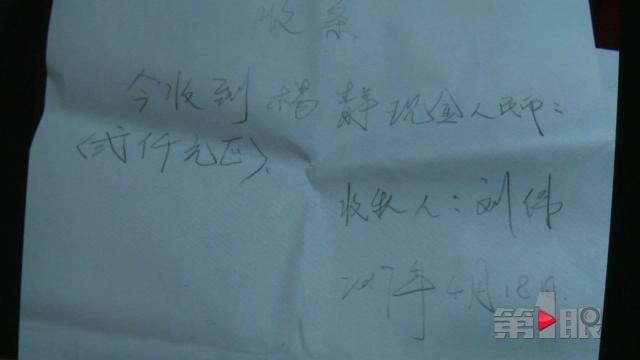 收条
今收到杨静现金人民币：
（贰仟元正）、
收款人：刘伟
2017年4月18日.
第1眼